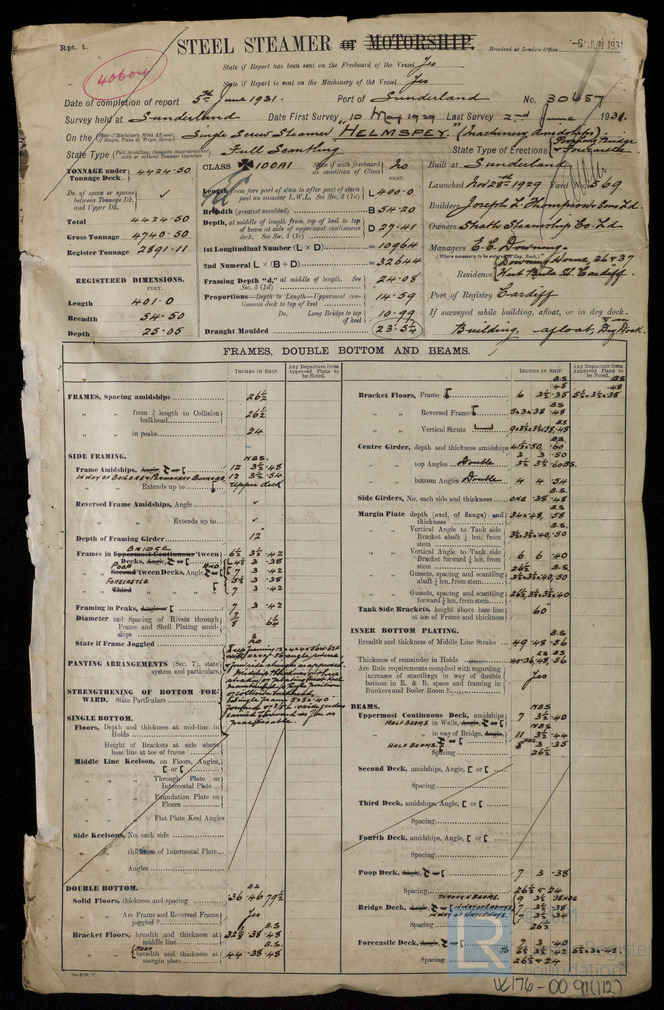 Rpt. 1.
STEEL STEAMER or MOTORSHIP.
Received at London Office 6 JUN 1931
40604
State if Report has been sent on the Freeboard of the Vessel Yes
State if Report is sent on the Machinery of the Vessel Yes
Date of completion of report 5th June 1931. Port of Sunderland No. 30657
Survey held at Sunderland Date First Survey 10 May 1929 Last Survey 2nd June 1931.
On the Single Screw Steamer "HELMSPEY" (Machinery Amidships)
State Type Full Scantling State Type of Erections Poop Bridge Forecastle
TONNAGE under Tonnage Deck 4424.50
Do. of space or spaces between Tonnage Dk. and Upper Dk.
Total 4424.50
Gross Tonnage 4740.50
Register Tonnage 2891.11
REGISTERED DIMENSIONS.
FEET.
Length 401.0
Breadth 54.50
Depth 25.05
CLASS 100A1 State if with freeboard as condition of Class No
Length from fore part of stem to after part of stern post on summer L.W.L. See Sec. 2 (1a) L 400.0
Breadth (greatest moulded) B 54.20
Depth, at middle of length from top of keel to top of beam at side of uppermost continuous deck. See Sec. 2 (1c) D 27.41
1st Longitudinal Number (L × D) = 10964
2nd Numeral L × (B + D) = 32644
Framing Depth "d," at middle of length. See Sec. 2 (1d) 24.08
Proportions—Depth to Length—Uppermost continuous deck to top of keel 14.59
Do. Long Bridge to top of keel 10.99
Draught Moulded 23.5½
Built at Sunderland
Launched Nov 28th 1929 Yard No. 569
Builders Joseph L. Thompson & Sons Ld
Owners Straths Steamship Co. Ld
Managers E. C. Downing.
Residence Downing House, 26 & 37 West Bute St. Cardiff.
Port of Registry Cardiff
If surveyed while building, afloat, or in dry dock.
Building, afloat, & in Dry Dock.
FRAMES, DOUBLE BOTTOM AND BEAMS.
INCHES IN SHIP.
Any Departure from Approved Plans to be Noted.
FRAMES, Spacing amidships 26½
" " from ⅗ length to Collision bulkhead 26½
" " in peaks 24
SIDE FRAMING.
Frame Amidships, Angle, or [ 12 3½ .48
IN WAY OF BOILERS & PERMANENT BUNKERS 12 3½ .54
Extends up to Upper deck
Reversed Frame Amidships, Angle
" " Extends up to
Depth of Framing Girder 12
BRIDGE
Frames in Uppermost Continuous 'tween Decks, Angle, or [ 6½ 3½ .42
POOP
Second 'tween Decks, Angle, or [ 7 3 .42
FORECASTLE
Third " " 7 3 .42
Framing in Peaks, Angle or [ 7 3 .42
Diameter and Spacing of Rivets through Frame and Shell Plating amidships
State if Frame Joggled No
PANTING ARRANGEMENTS (Sec. 7), state system and particulars
STRENGTHENING OF BOTTOM FORWARD. State Particulars
SINGLE BOTTOM.
Floors, Depth and thickness at mid-line in Holds
Height of Brackets at side above base at toe of frame
Middle Line Keelson, on Floors, Angles, [ or [
" " Through Plate or Intercostal Plate
" " Foundation Plate on Floors
" " Flat Plate Keel Angles
Side Keelsons, No. each side
" " thickness of Intercostal Plate
" " Angles
DOUBLE BOTTOM.
Solid Floors, thickness and spacing .36 .46 79½
" " Are Frame and Reversed Frame joggled? Yes
Bracket Floors, breadth and thickness at middle line
" " breadth and thickness at margin plate 44 .38 .48
Bracket Floors, Frame [ 6 3½ .35
" " Reversed Frame [ 5 × 3 × .38 .48
" " Vertical Struts
Centre Girder, depth and thickness amidships 41½ .50 .60
" " top Angles Double
" " bottom Angles Double 4 4 .54
Side Girders, No. each side and thickness one .38 .48
Margin Plate depth (excl. of flange) and thickness 34 × .48 .58
" " Vertical Angle to Tank side Bracket abaft ¼ len. from stem
" " Vertical Angle to Tank side Bracket forward ¼ len. from stem 6 6 .40
" " Gussets, spacing and scantling abaft ¼ len. from stem
" " Gussets, spacing and scantling forward ¼ len. from stem
Tank Side Brackets, height above base line at toe of Frame and thickness 60
INNER BOTTOM PLATING.
Breadth and thickness of Middle Line Strake 49 .48 .56
Thickness of remainder in Holds
Are Rule requirements complied with regarding increases of scantlings in way of double bottom in E. & B. space and framing in Bunkers and Boiler Room? Yes
BEAMS.
Uppermost Continuous Deck, amidships 7 3½ .40
HALF BEAMS in Wells, Angle, or [
" " in way of Bridge, Angle, 11 3½ .44
HALF BEAMS
Spacing 26½
Second Deck, amidships, Angle, [ or [
Spacing
Third Deck, amidships, Angle, [ or [
Spacing
Fourth Deck, amidships, Angle, [ or [
Spacing
Poop Deck, Angle, or [ 7 3 .38
Spacing 26½ & 24
THROUGH BEAMS.
Bridge Deck, Angle, or [
Spacing 26½
Forecastle Deck, Angle, or [ 7 3 .40
Spacing 26½ & 24
W176-0091(1/2)